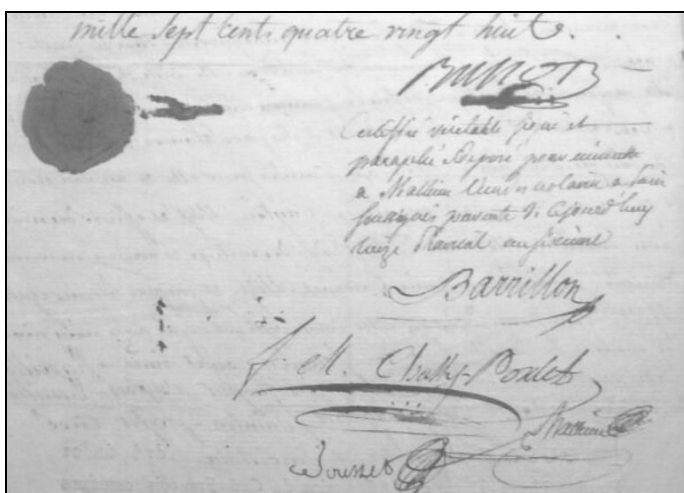 mille sept cents quatre vingt huit.
Certiffié véritable signé et
paraphé déposé pour minutte
a Mathieu notaire a
de ce jourd'huy
Prairial an sixieme
Barrillon
f. M. Chally-Poulet
Mathieu
Jousset